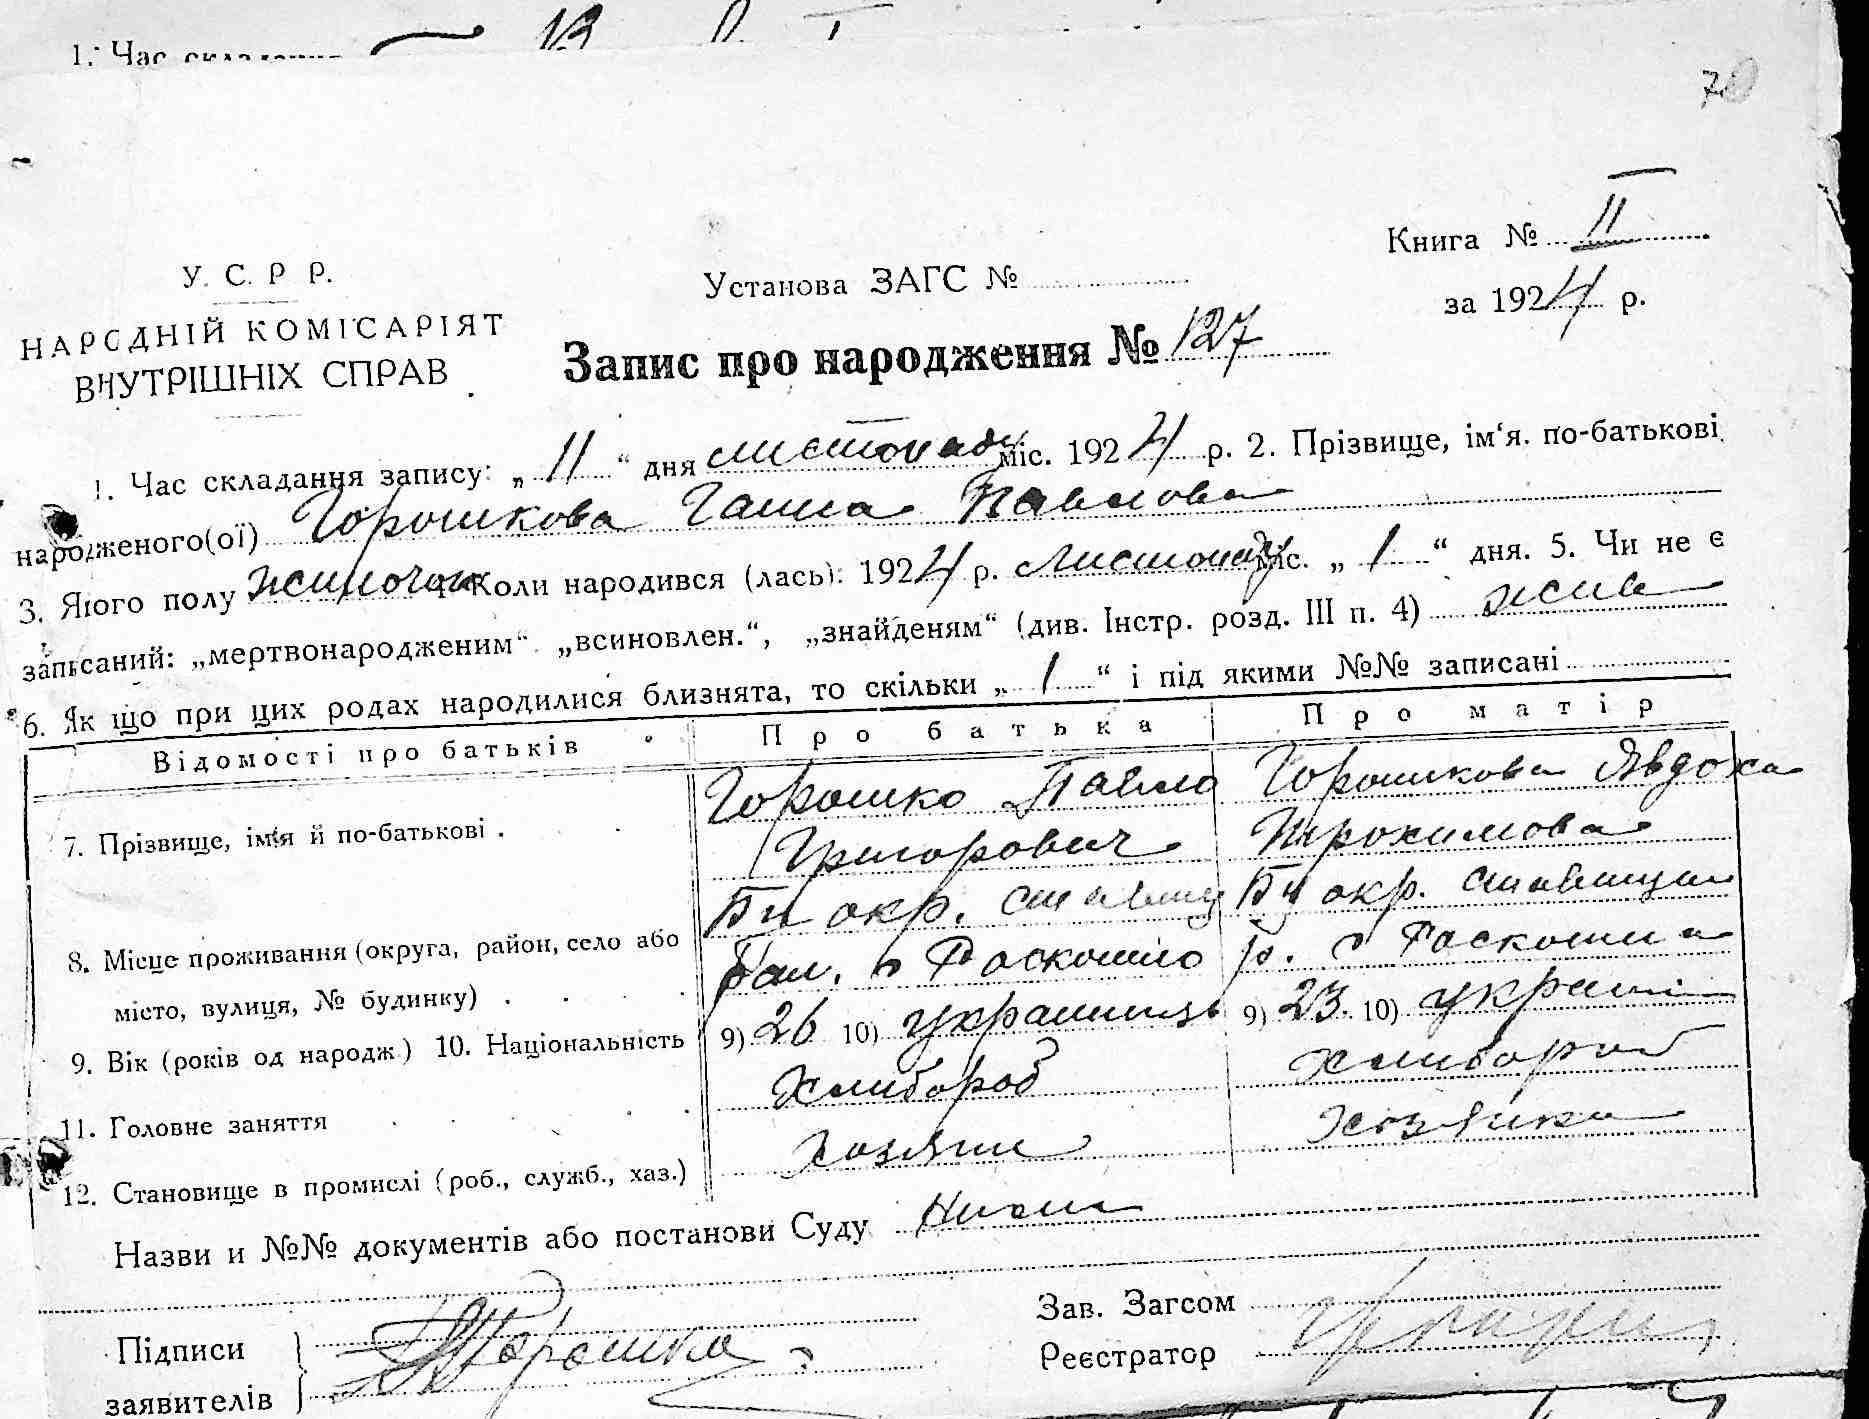 1. Час складання
70
Книга № II
У. С. Р Р.
Установа ЗАГС №
за 1924 р.
НАРОДНІЙ КОМІСАРІЯТ
ВНУТРІШНІХ СПРАВ
Запис про народження № 127
1. Час складання запису: „ 11 “ дня листопаду міс. 1924 р. 2. Прізвище, ім‘я. по-батькові
народженого(ої) Горошкова Ганна Павлова
3. Якого полу жиночок Коли народився (лась): 1924 р. листопаду міс. „ 1 “ дня. 5. Чи не є
записаний: „мертвонародженим“ „всиновлен.“, „знайденям“ (див. Інстр. розд. III п. 4) жива
6. Як що при цих родах народилися близнята, то скільки „ 1 “ і під якими №№ записані
Відомості про батьків Про батька Про матір
7. Прізвище, імʼя й по-батькові . Горошко Павло Горошкова Явдоха
Григорович Трохимова
8. Місце проживання (округа, район, село або Бц окр. Ставищ Бц окр. Ставищан
місто, вулиця, № будинку) . рай. с Роскошно р. с Роскошна
9. Вік (років од народж.) 10. Національність 9) 26 10) украинець 9) 23. 10) україн
11. Головне заняття Хлибороб хлибороб
12. Становище в промислі (роб., служб., хаз.) Хозяин хозяйка
Назви и №№ документів або постанови Суду
Зав. Загсом
Підписи Горошко
Реєстратор
заявителів